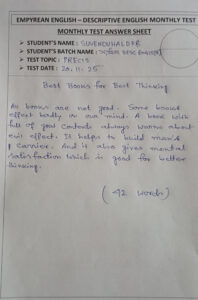 EMPYREAN ENGLISH – DESCRIPTIVE ENGLISH MONTHLY TEST
MONTHLY TEST ANSWER SHEET
➤ STUDENT'S NAME : SUVENDU HALDER
➤ STUDENT'S BATCH NAME : DESC ENGLISH
➤ TEST TOPIC : PRECIS
➤ TEST DATE : 20.11.25
Best Books for Best Thinking
All books are not good. Some books
effect badly on our mind. A book with
full of good contents always warns about
evil effect. It helps to build man's
carrier. And it also gives mental
satisfaction which is good for better
thinking.
(42 words)